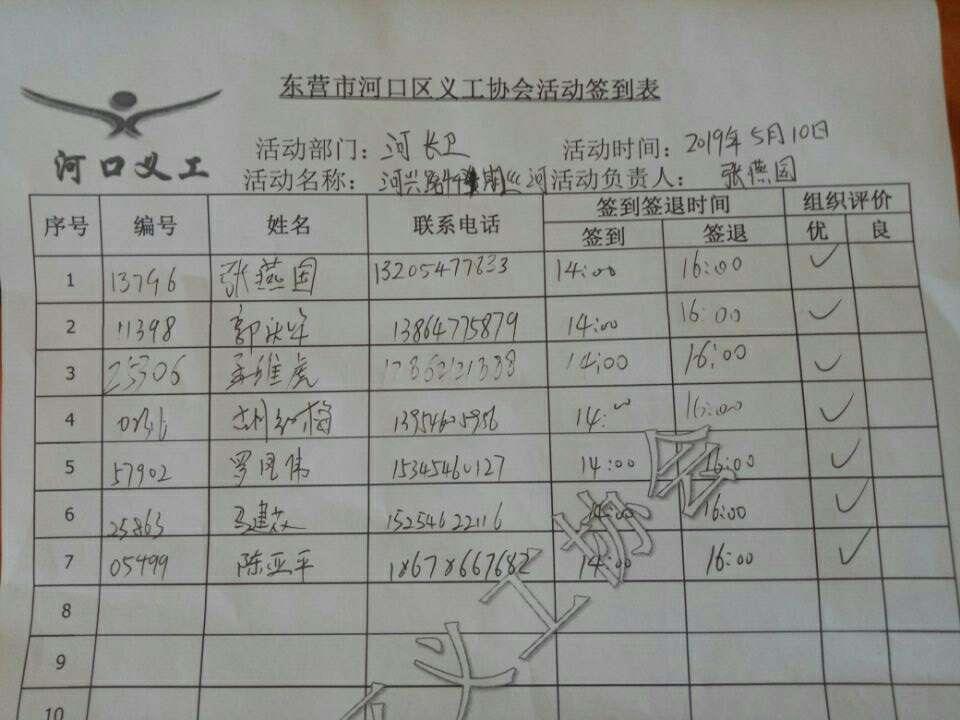 东营市河口区义工协会活动签到表
河口义工
活动部门：河长卫 活动时间：2019年5月10日
活动名称：河兴路 河 活动负责人：张燕国
序号 编号 姓名 联系电话 签到签退时间 组织评价
签到 签退 优 良
1 13796 张燕国 13205477833 14:00 16:00 ✓
2 11398 13864775879 14:00 16:00 ✓
3 25306 孟维虎 14:00 16:00 ✓
4 14:00 16:00 ✓
5 57902 罗凤伟 15345460127 14:00 16:00 ✓
6 25863 马建 15254622116 14:00 16:00 ✓
7 05499 陈亚平 18678667682 14:00 16:00 ✓
8
9
10
义工协